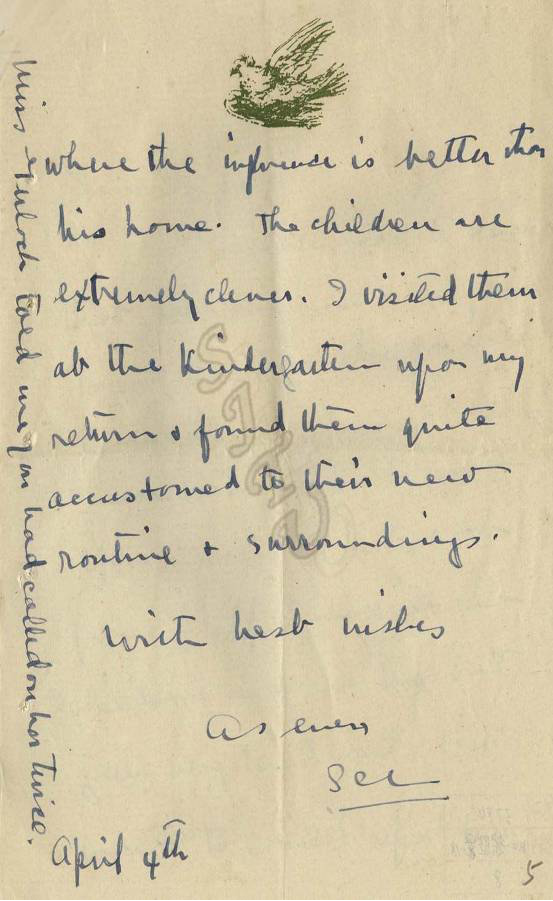 where the influence is better than
his home. The children are
extremely clever. I visited them
at the Kindergarten upon my
return & found them quite
accustomed to their new
routine & surroundings.
With best wishes
As ever,
SCL
April 4th
5
Miss told me you had called on her twice.